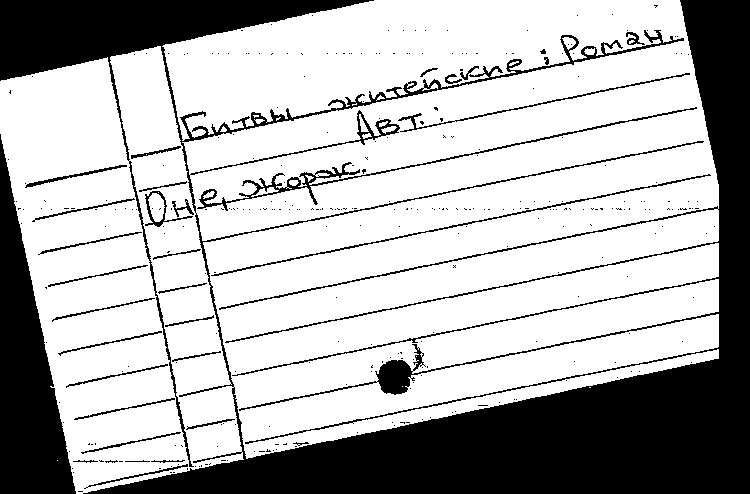 Битвы житейские : Роман.
Авт. :
Оне, Жорж.